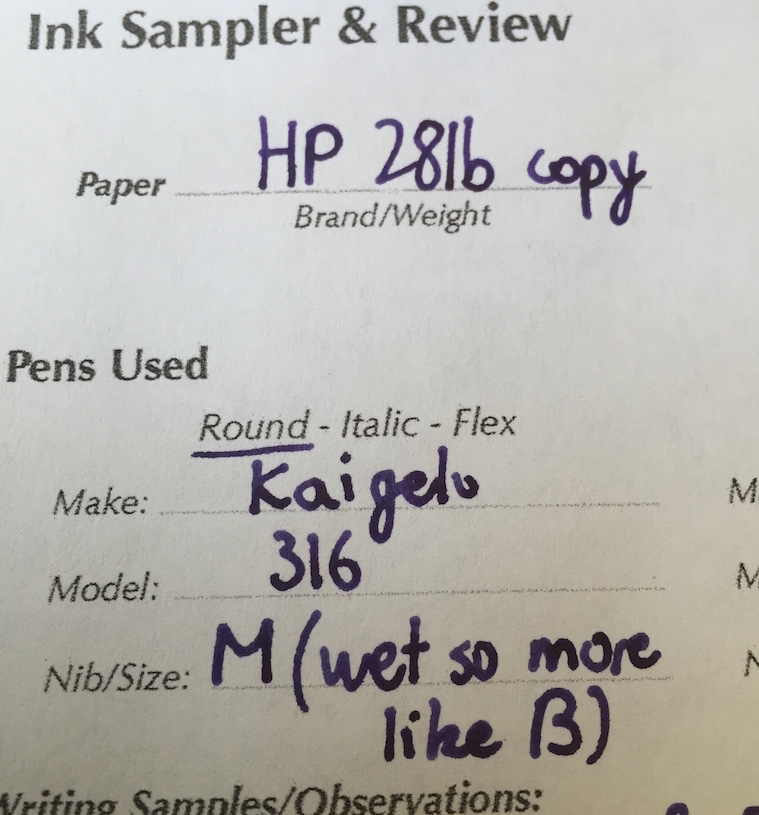 Ink Sampler & Review
Paper HP 28lb copy
Brand/Weight
Pens Used
Round - Italic - Flex
Make: Kaigelu
Model: 316
Nib/Size: M (wet so more
like B)
Writing Samples/Observations: